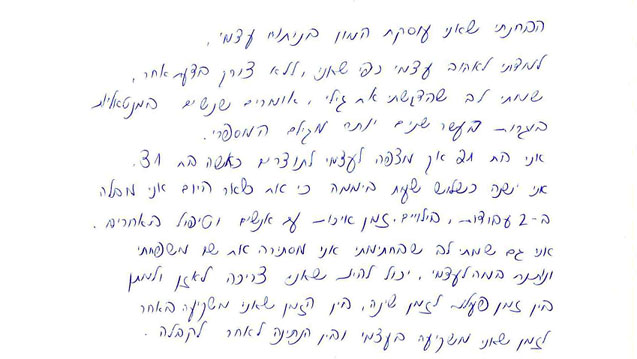 הבחנתי שאני עוסקת המון בניתוח עצמי,
למדתי לאהוב עצמי כפי שאני, ללא צורך בדעת אחר,
שמתי לב שהדגשתי את גילי, אומרים שנשים המנטאלית
בוגרות בעשר שנים יותר מגילם המספרי.
אני בת 21 אך מצפה לעצמי לתוצרים כאשה בת 31.
אני ישנה כשלוש שעות ביממה כי את שאר היום אני מבלה
ב-2 עבודות, בילויים, זמן איכות עם אנשים וטיפול באחרים.
אני גם שמתי לב שבחתימתי אני מסתירה את שם משפחתי
ונותנת במה לעצמי. יכול להיות שאני צריכה לאזן ולמתן
בין זמן פעולות לזמן שינה, בין הזמן שאני משקיעה באחר
לזמן שאני משקיעה בעצמי ובין הנתינה לאחר לקבלה.